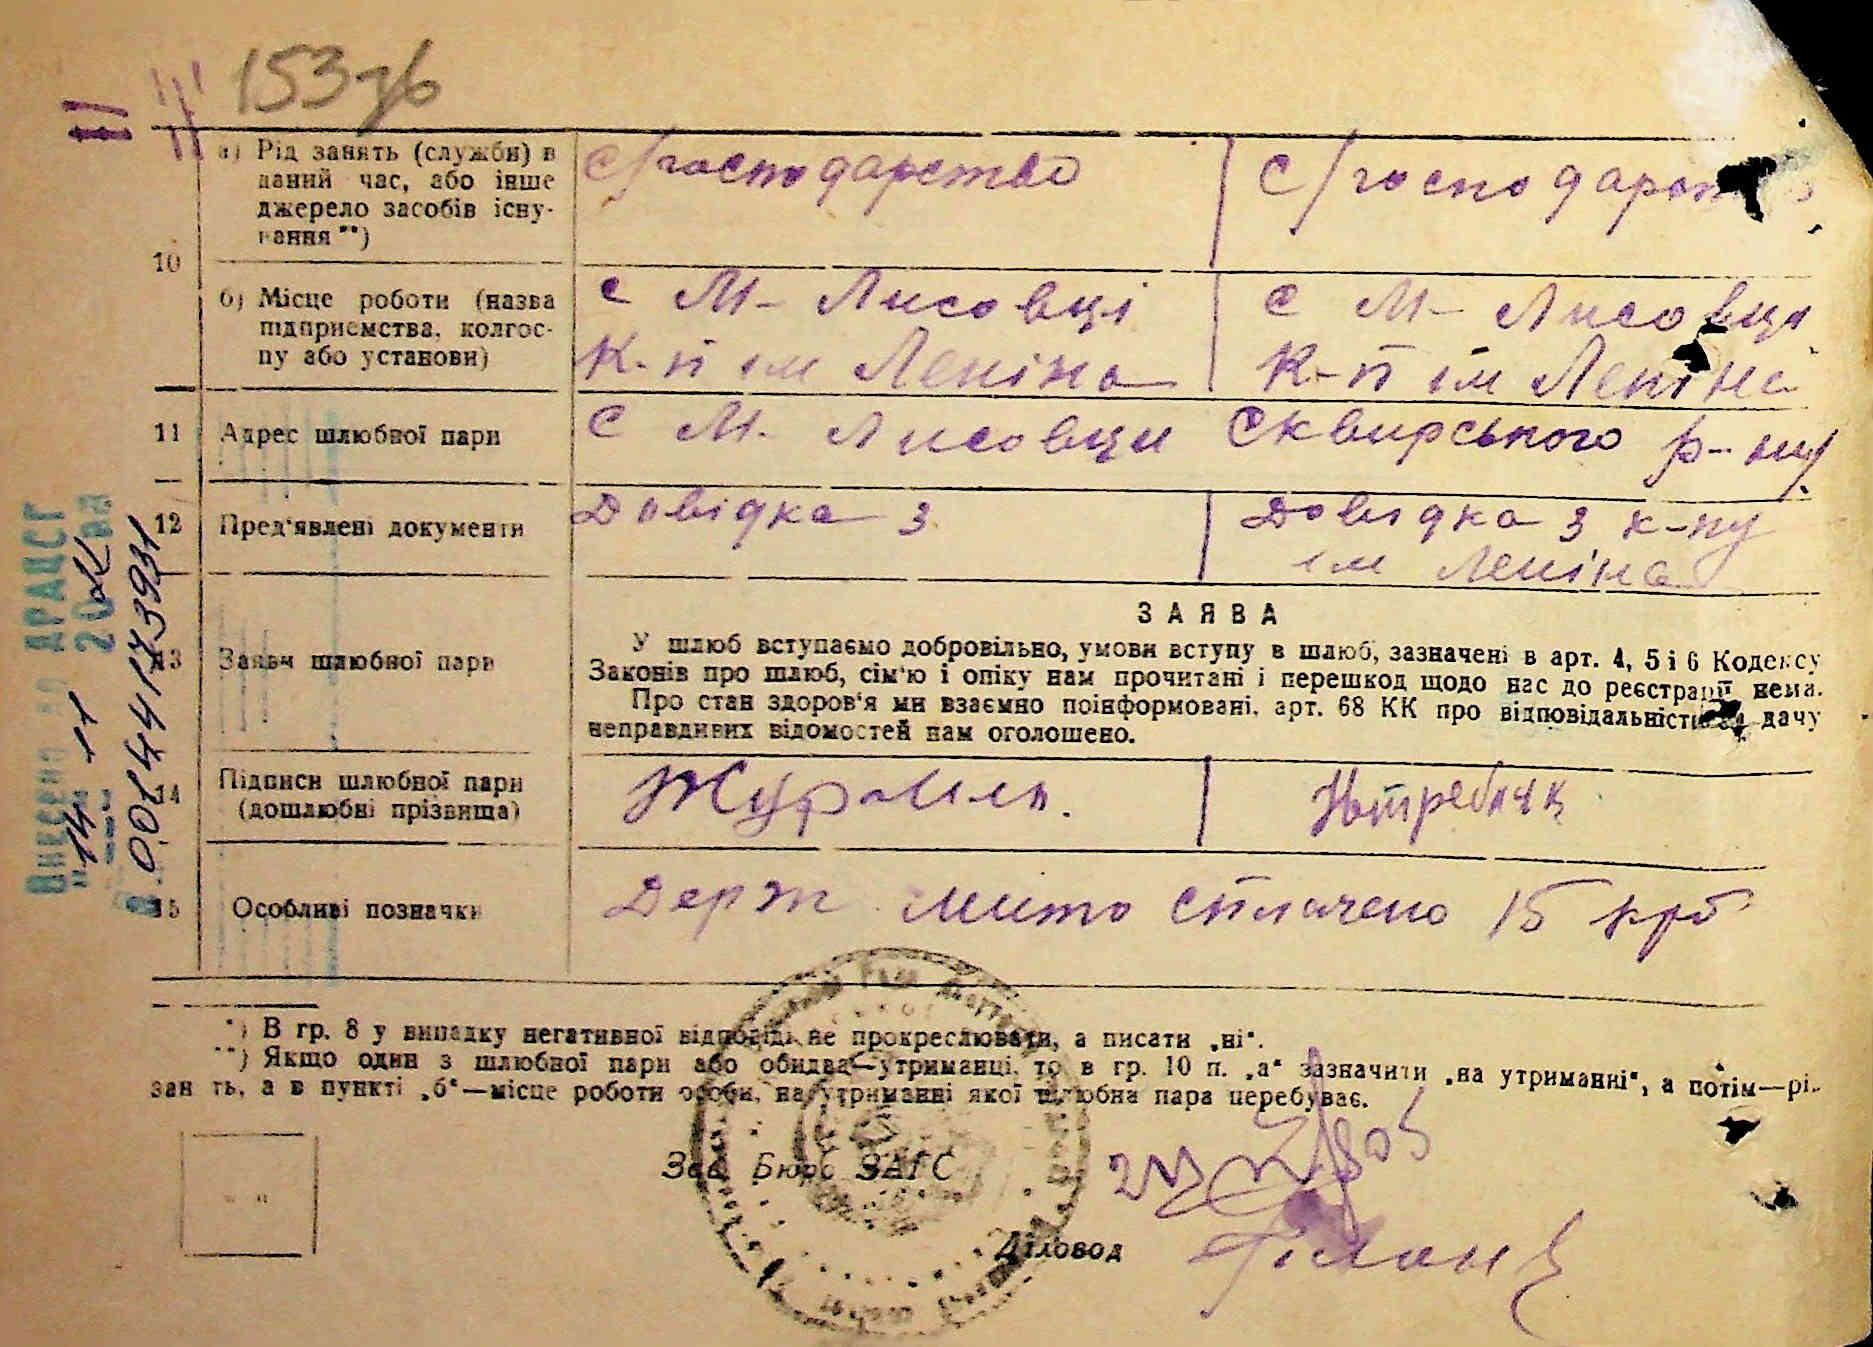 153 зв
а) Рід занять (служби) в с/господарство с/господарст
даний час, або інше
джерело засобів існу-
вання **)
10
б) Місце роботи (назва с М- Лисовці с М- Лисовци
підприємства, колгос- К-п ім Леніна К-п ім Леніна
пу або установи)
11 Адрес шлюбної пари с М. Лисовци Сквирського р-ну
12 Пред'явлені документи Довідка з Довідка з к-пу
ім Леніна
ЗАЯВА
13 Заява шлюбної пари У шлюб вступаємо добровільно, умови вступу в шлюб, зазначені в арт. 4, 5 і 6 Кодексу
Законів про шлюб, сім'ю і опіку нам прочитані і перешкод щодо нас до реєстрації нема.
Про стан здоров'я ми взаємно поінформовані, арт. 68 КК про відповідальність за дачу
неправдивих відомостей нам оголошено.
14 Підписи шлюбної пари
(дошлюбні прізвища)
15 Особливі позначки Держ мито сплачено 15 крб
*) В гр. 8 у випадку негативної відповіді не прокреслювати, а писати „ні“.
**) Якщо один з шлюбної пари або обидва—утриманці, то в гр. 10 п. „а“ зазначити „на утриманні“, а потім—рід
занять, а в пункті „б“—місце роботи особи, на утриманні якої шлюбна пара перебуває.
Зав. Бюро ЗАГС
Діловод
Внесено до ДРАЦСГ
"14" 11
00144173931